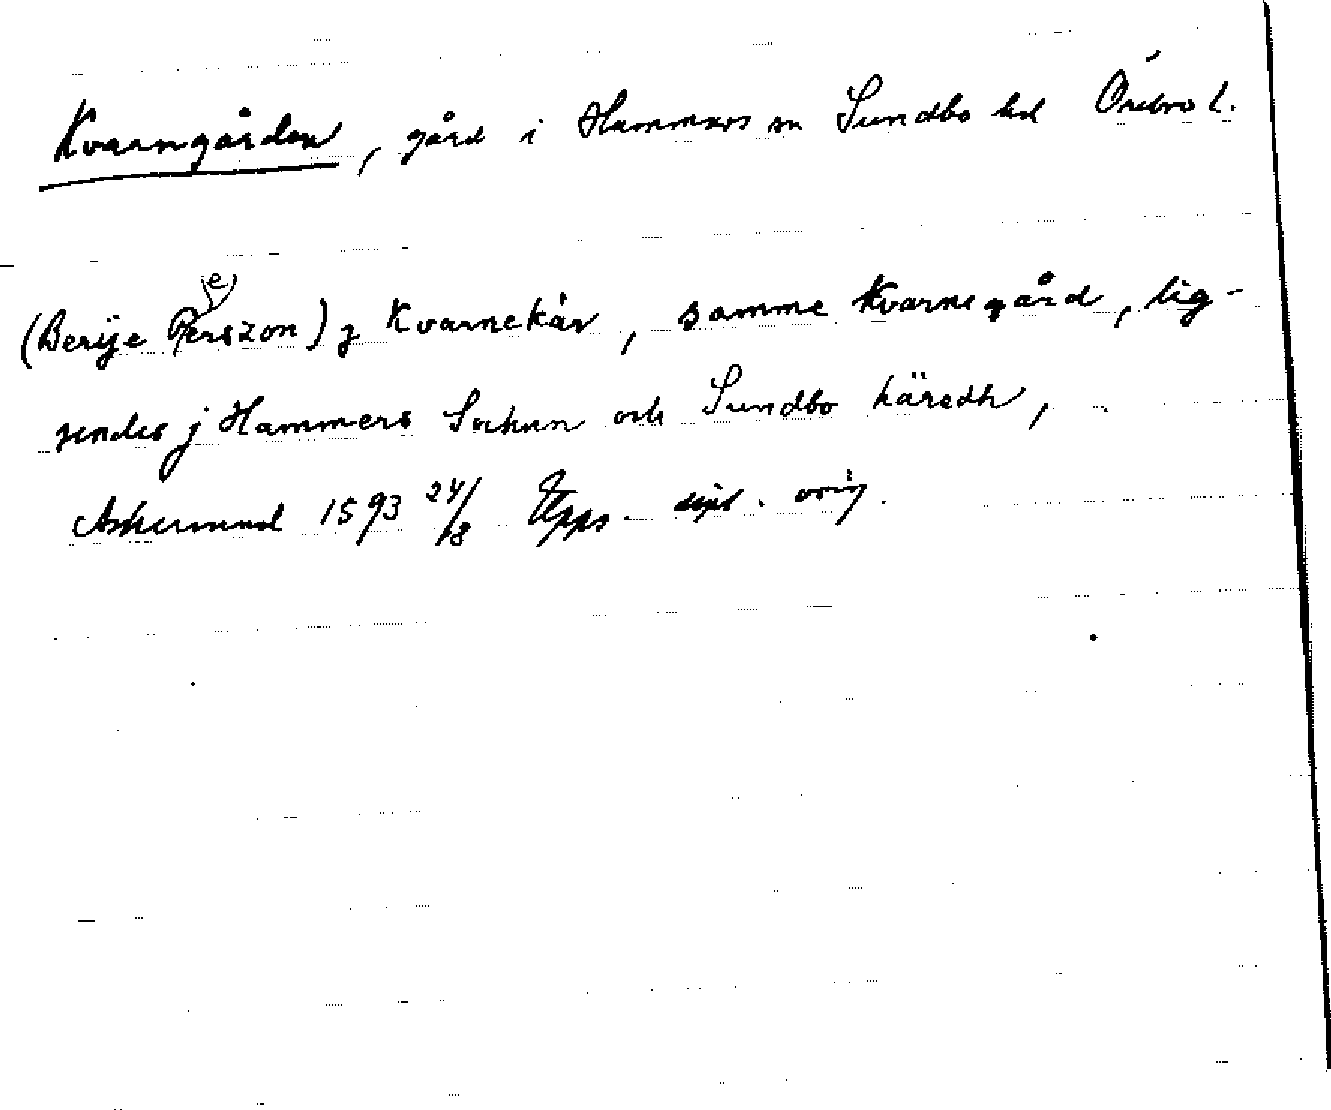 Kvarngården, gård i Hammars sn Sundbo hd Örebro l.
(Berije Perszon) j Kvarnekär, samme Kvarnegård, lig-
jendes j Hammers Sochnn och Sundbo häredh,
Askersund 1593 24/8 Upps. dipl. orig.